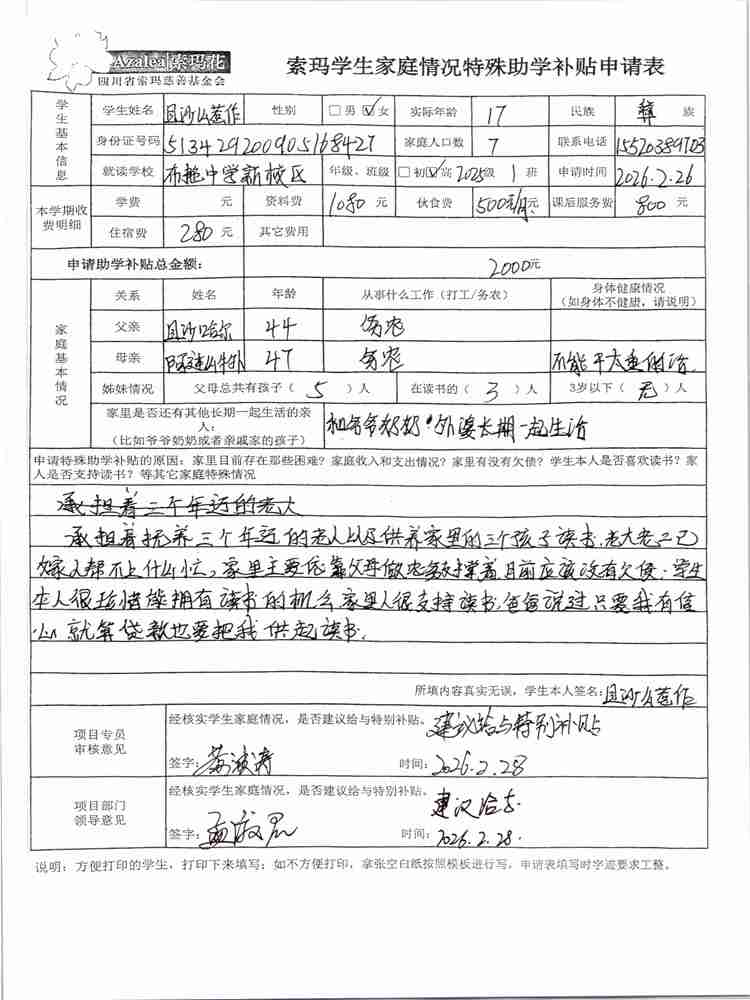 Azalea 索玛花
四川省索玛慈善基金会
索玛学生家庭情况特殊助学补贴申请表
学生基本信息
学生姓名 且沙么惹作 性别 □男 ☑女 实际年龄 17 民族 彝 族
身份证号码 513429200905168427 家庭人口数 7 联系电话 15520389703
就读学校 布拖中学新校区 年级、班级 □初 ☑高 2025级 1 班 申请时间 2026.2.26
本学期收费明细
学费 元 资料费 1080 元 伙食费 500元/月 元 课后服务费 800 元
住宿费 280 元 其它费用
申请助学补贴总金额: 2000元
家庭基本情况
关系 姓名 年龄 从事什么工作(打工/务农) 身体健康情况(如身体不健康,请说明)
父亲 且沙哈尔 44 务农
母亲 47 务农 不能干太重的活.
姊妹情况 父母总共有孩子( 5 )人 在读书的( 3 )人 3岁以下( 无 )人
家里是否还有其他长期一起生活的亲人:
(比如爷爷奶奶或者亲戚家的孩子)
和爷爷奶奶 外婆长期一起生活
申请特殊助学补贴的原因:家里目前存在那些困难?家庭收入和支出情况?家里有没有欠债?学生本人是否喜欢读书?家
人是否支持读书?等其它家庭特殊情况
承担着三个年迈的老人
承担着抚养三个年迈的老人以及供养家里的三个孩子读书.老大老二已
嫁人帮不上什么忙,家里主要依靠父母做农 支撑着目前应该没有欠债.学生
本人很珍惜能拥有读书的机会 家里人很支持读书,爸爸说过只要我有信
心 就算贷款也要把我供起读书.
所填内容真实无误,学生本人签名: 且沙么惹作
项目专员
审核意见
经核实学生家庭情况,是否建议给与特别补贴、 建议给与特别补贴
签字: 时间: 2026.2.28
项目部门
领导意见
经核实学生家庭情况,是否建议给与特别补贴、 建议给予.
签字: 时间: 2026.2.28.
说明:方便打印的学生,打印下来填写;如不方便打印,拿张空白纸按照模板进行写,申请表填写时字迹要求工整。